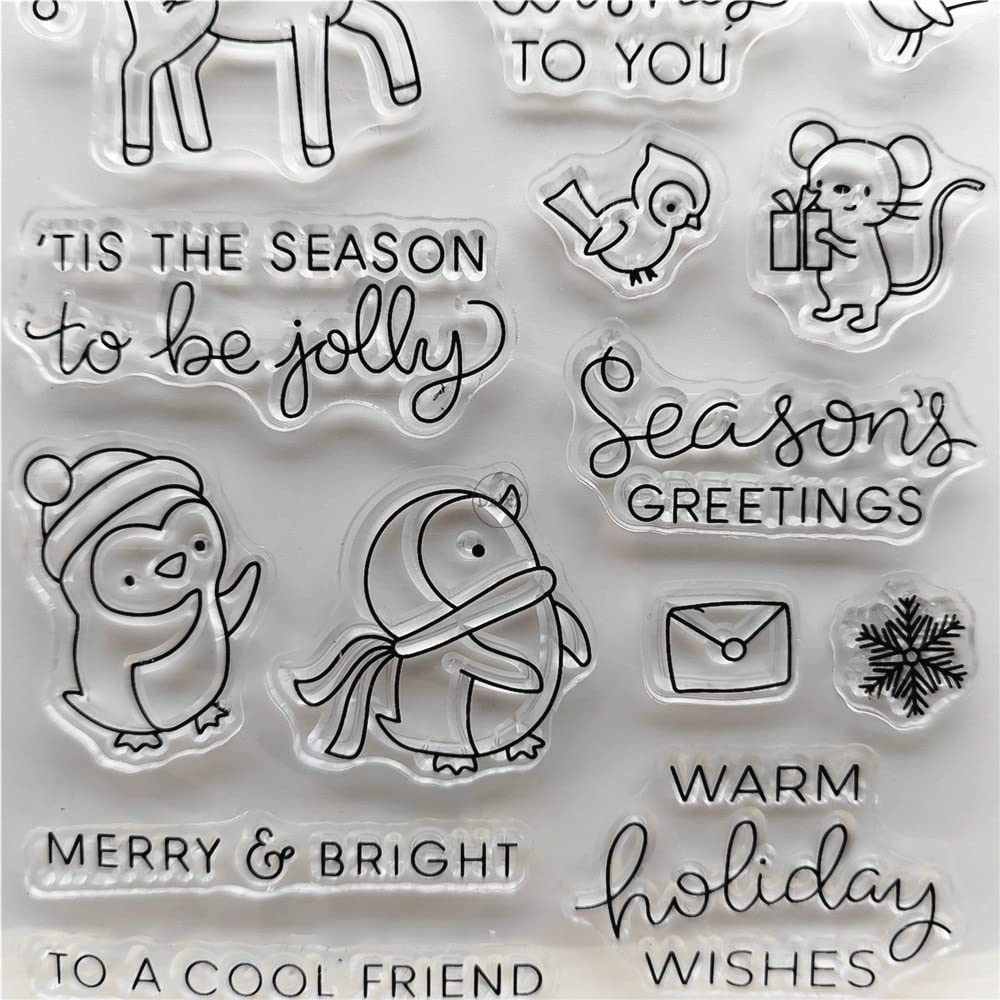 TO YOU
'TIS THE SEASON
to be jolly
Season's
GREETINGS
MERRY & BRIGHT
WARM
holiday
WISHES
TO A COOL FRIEND